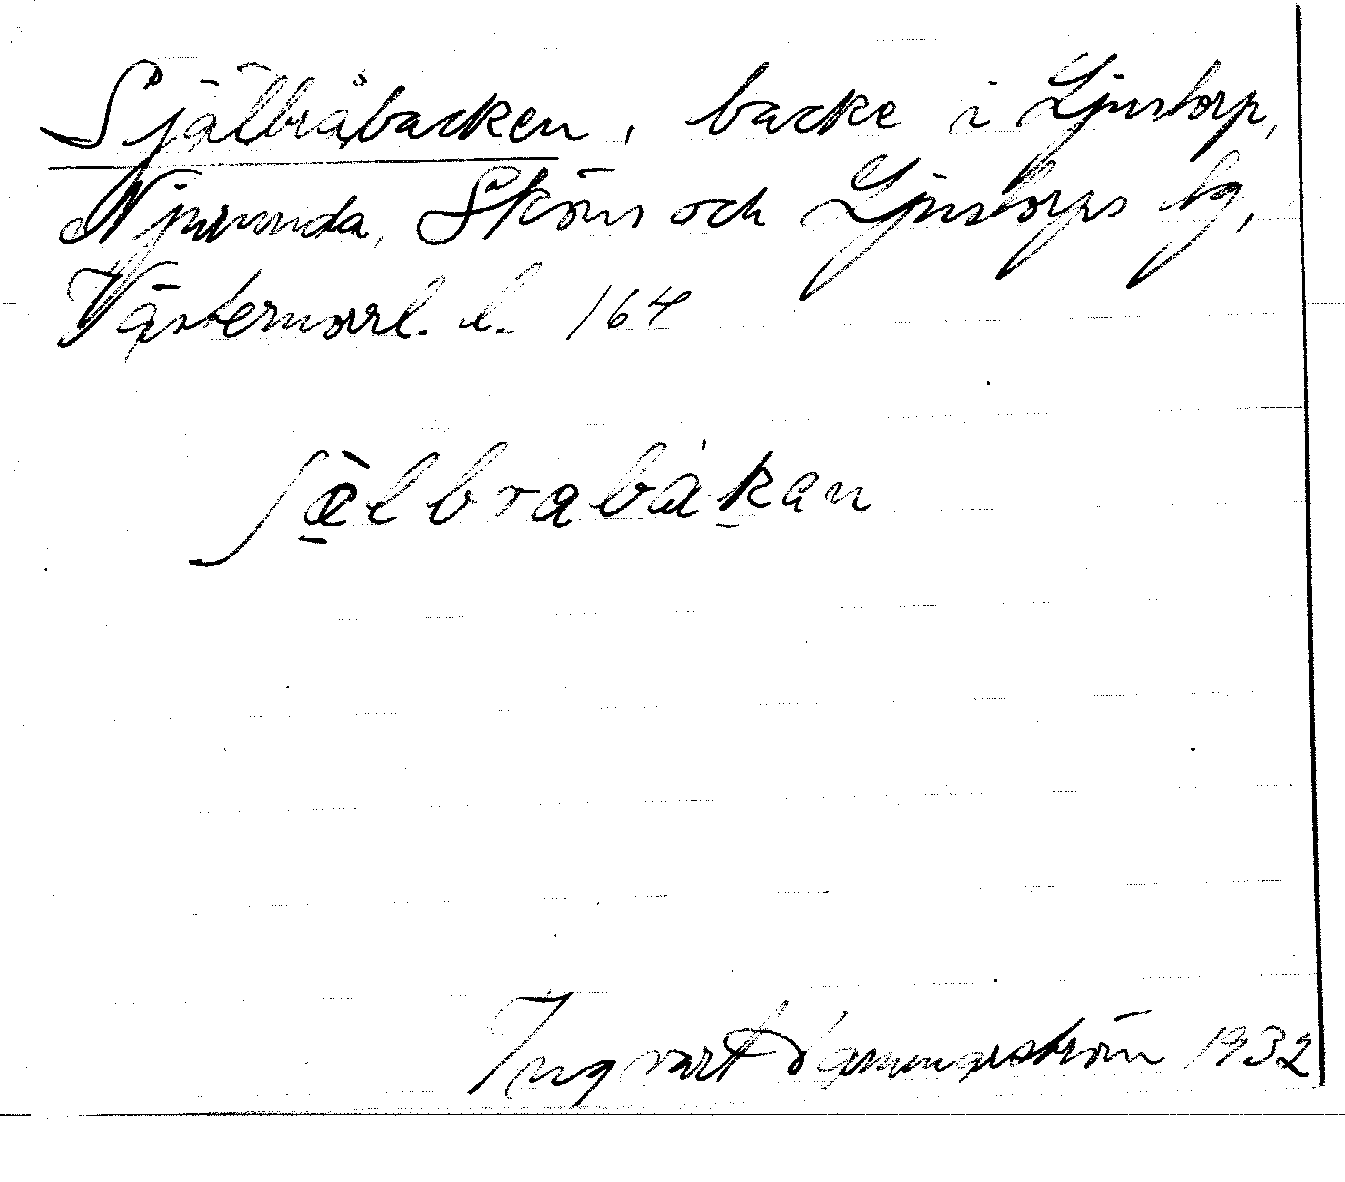 Själbråbacken, backe i Ljustorp,
Njurunda, Sköns och Ljustorps tg,
Västernorrl. l. 164
ʃæ̀lbrabàkan
Ingvart Hammarström 1932